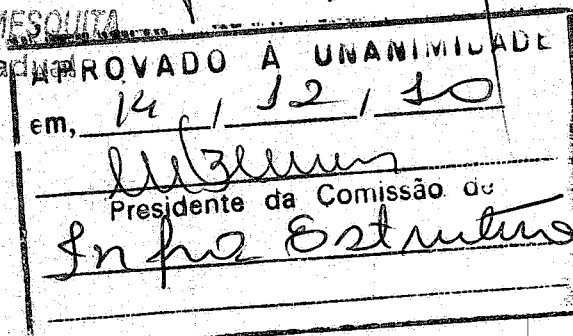 MESQUITA
APROVADO À UNANIMIDADE
em, 14 / 12 / 10
Presidente da Comissão de
Infra Estrutura